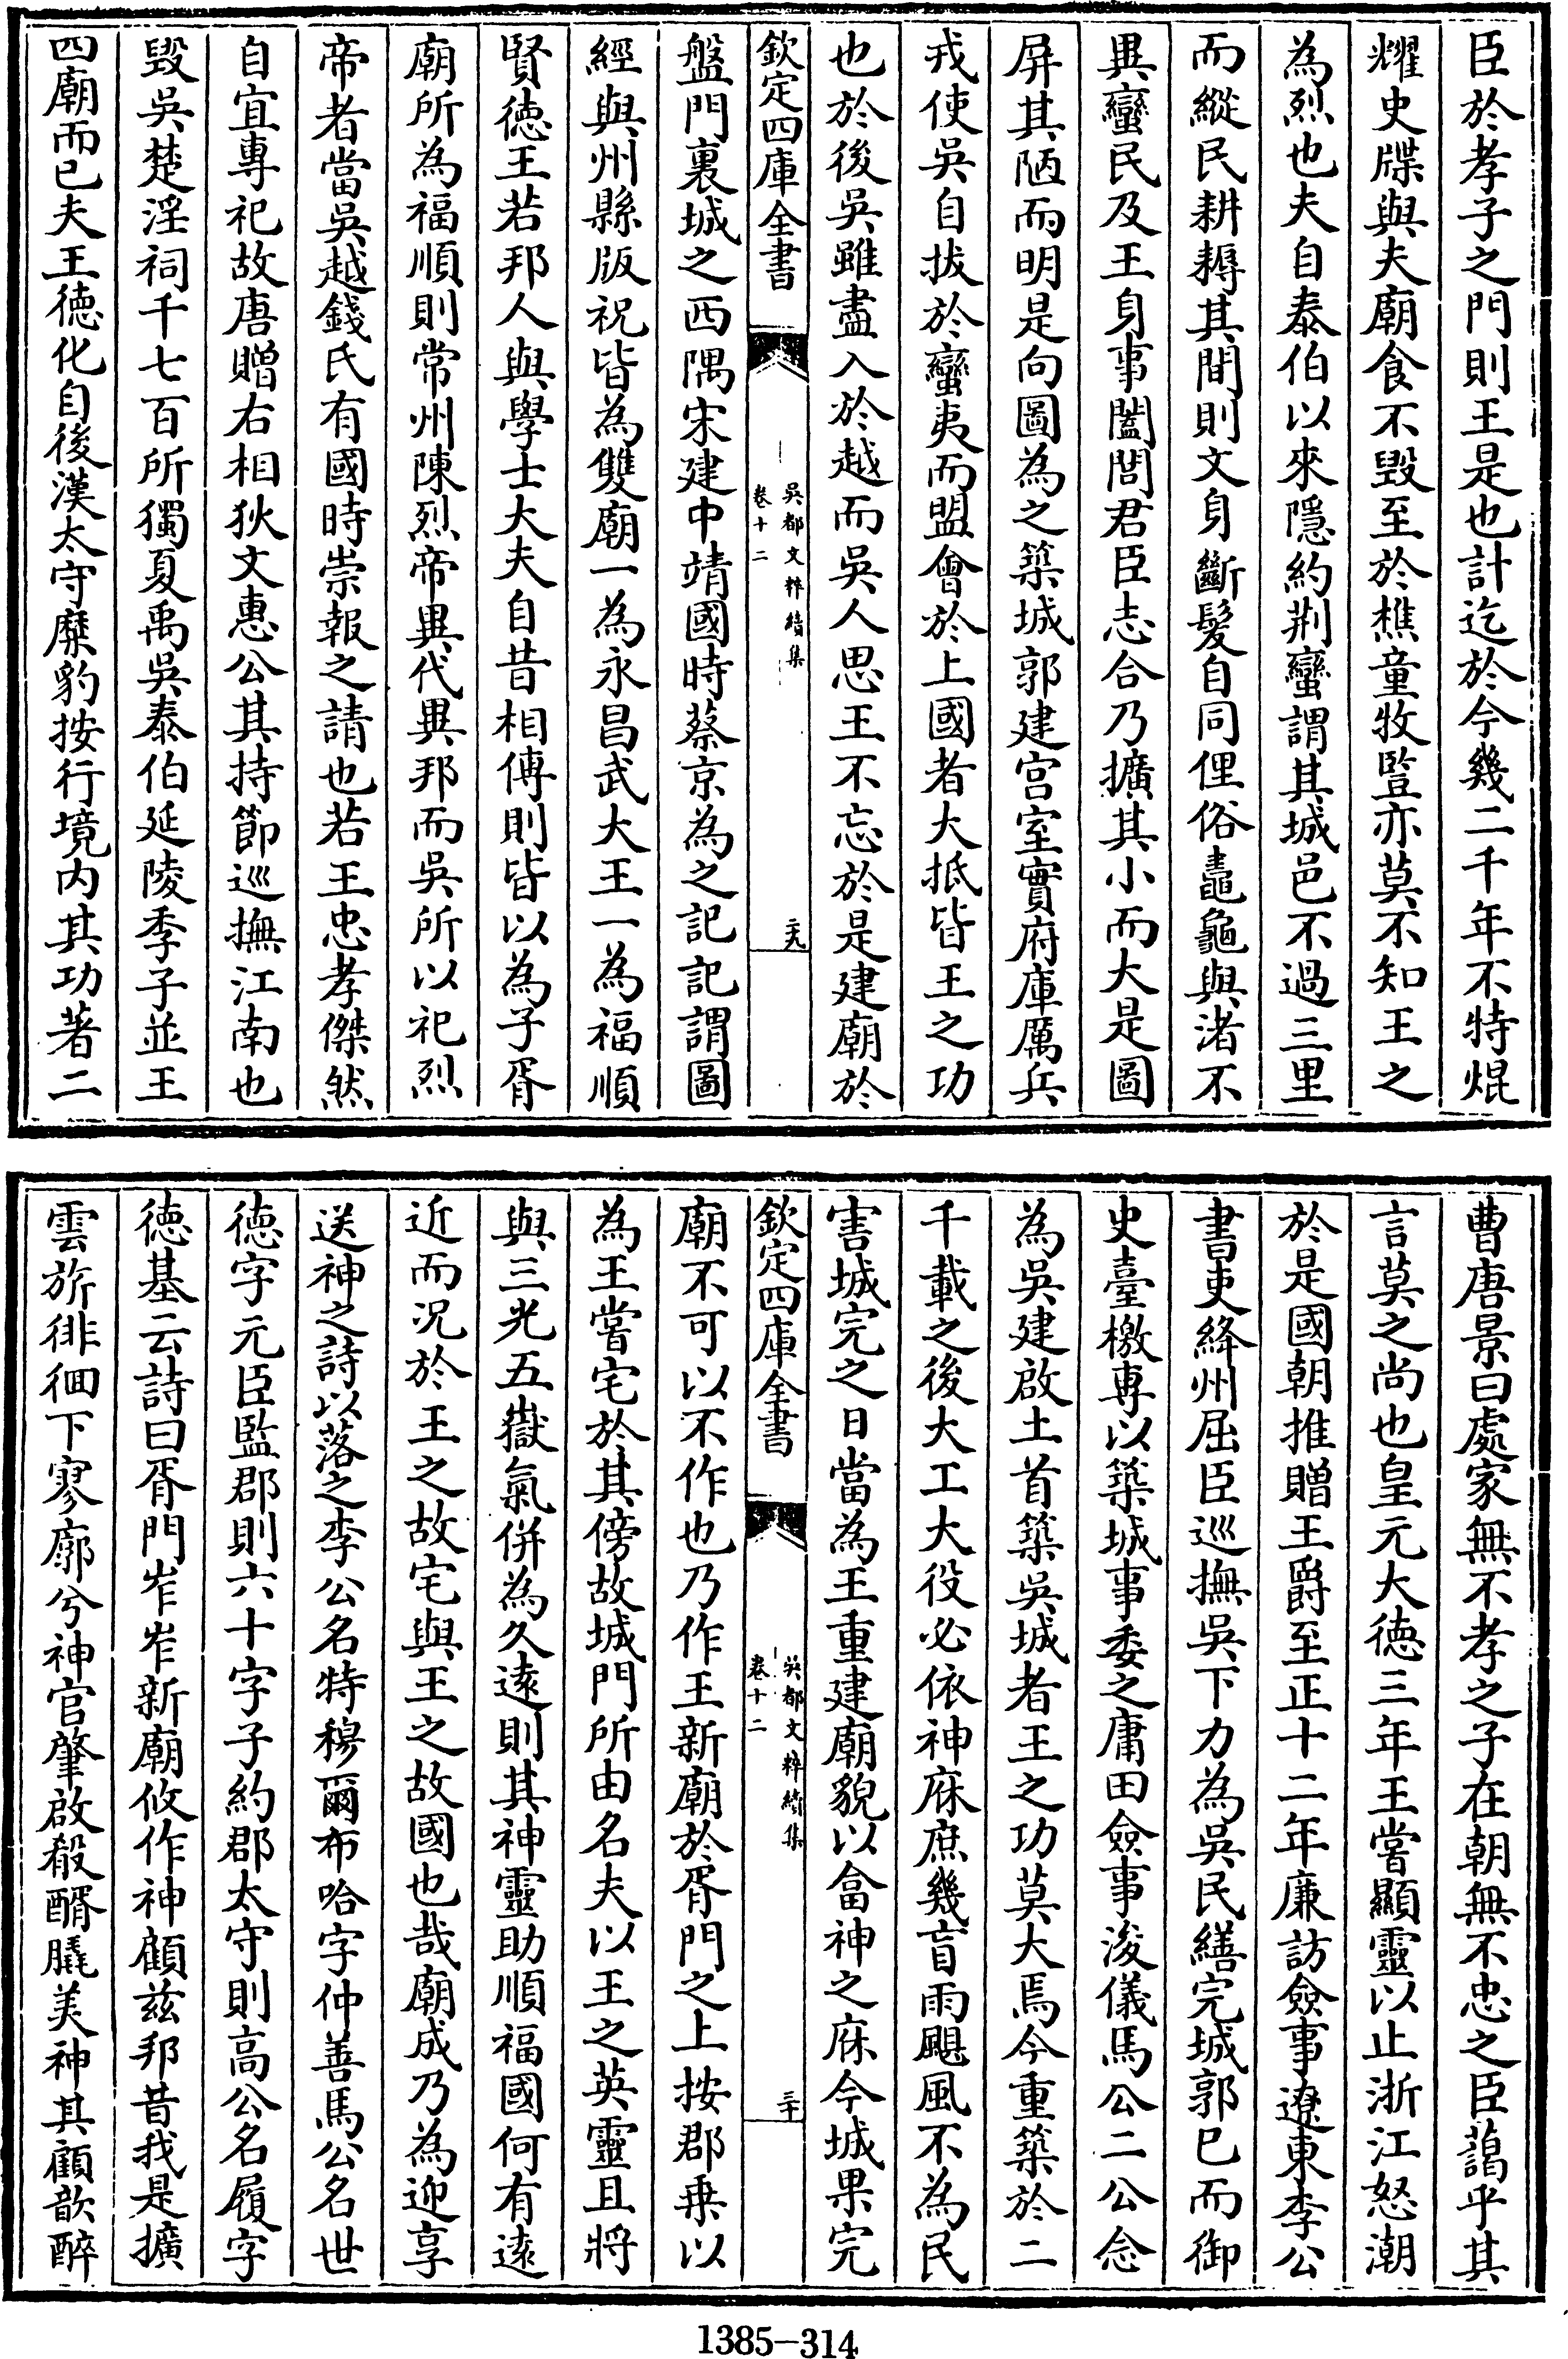 臣於孝子之門則王是也計迄於今幾二千年不特焜
耀史牒與夫廟食不毀至於樵童牧豎亦莫不知王之
為烈也夫自泰伯以來隱約荆蠻謂其城邑不過三里
而縱民耕耨其間則文身斷髮自同俚俗鼃龜與渚不
異蠻民及王身事闔閭君臣志合乃擴其小而大是圖
屏其陋而明是向圖為之築城郭建宫室實府庫厲兵
戎使吳自拔於蠻夷而盟會於上國者大抵皆王之功
也於後吳雖盡入於越而吳人思王不忘於是建廟於
欽定四庫全書
吳都文粹續集
卷十二
二十九
盤門裏城之西隅宋建中靖國時蔡京為之記記謂圖
經與州縣版祝皆為雙廟一為永昌武大王一為福順
賢德王若邦人與學士大夫自昔相傳則皆以為子胥
廟所為福順則常州陳烈帝異代異邦而吳所以祀烈
帝者當吳越錢氏有國時崇報之請也若王忠孝傑然
自宜專祀故唐贈右相狄文惠公其持節巡撫江南也
毀吳楚淫祠千七百所獨夏禹吳泰伯延陵季子並王
四廟而已夫王德化自後漢太守糜豹按行境内其功著二
曹唐景曰處家無不孝之子在朝無不忠之臣藹乎其
言莫之尚也皇元大德三年王嘗顯靈以止浙江怒潮
於是國朝推贈王爵至正十二年廉訪僉事遼東李公
書吏絳州屈臣巡撫吳下力為吳民繕完城郭已而御
史臺檄專以築城事委之庸田僉事浚儀馬公二公念
為吳建啟土首築吳城者王之功莫大焉今重築於二
千載之後大工大役必依神庥庶幾盲雨颶風不為民
害城完之日當為王重建廟貌以畣神之庥今城果完
欽定四庫全書
吳都文粹續集
卷十二
三十
廟不可以不作也乃作王新廟於胥門之上按郡乗以
為王嘗宅於其傍故城門所由名夫以王之英靈且將
與三光五嶽氣併為久遠則其神靈助順福國何有遠
近而况於王之故宅與王之故國也哉廟成乃為迎享
送神之詩以落之李公名特穆爾布哈字仲善馬公名世
德字元臣監郡則六十字子約郡太守則高公名履字
德基云詩曰胥門岞岞新廟攸作神顧兹邦昔我是擴
雲旂徘徊下寥廓兮神官肇啟殽醑膬美神其顧歆醉
1385-314